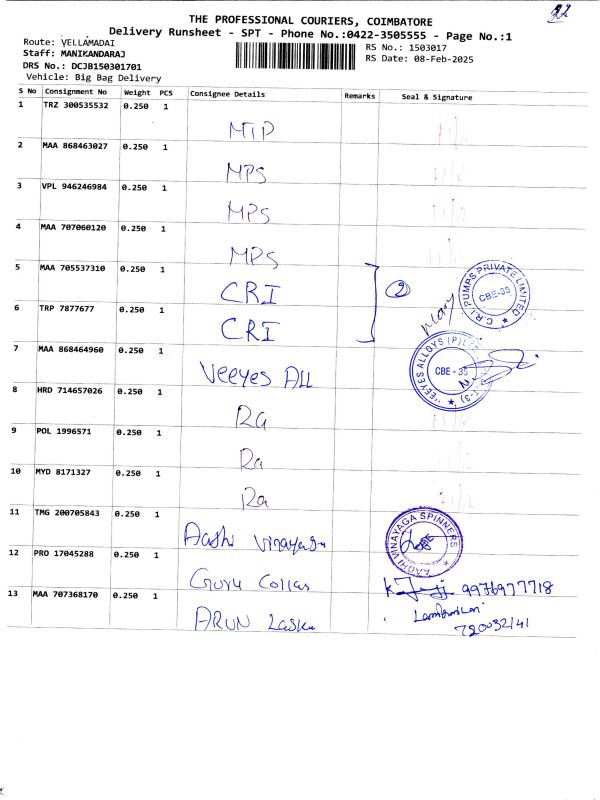 THE PROFESSIONAL COURIERS, COIMBATORE
Delivery Runsheet - SPT - Phone No.:0422-3505555 - Page No.:1
Route: VELLAMADAI
Staff: MANIKANDARAJ
DRS No.: DCJB150301701
Vehicle: Big Bag Delivery
RS No.: 1503017
RS Date: 08-Feb-2025
S No Consignment No Weight PCS Consignee Details Remarks Seal & Signature
1 TRZ 300535532 0.250 1
MTP
2 MAA 868463027 0.250 1
MPS
3 VPL 946246984 0.250 1
MPS
4 MAA 707060120 0.250 1
MPS
5 MAA 705537310 0.250 1
CRI 2
C.R.I. PUMPS PRIVATE LIMITED
CBE-35
6 TRP 7877677 0.250 1
CRI
7 MAA 868464960 0.250 1
Veeyes All
VEEYES ALLOYS (P)
CBE - 35
8 HRD 714657026 0.250 1
Ra
9 POL 1996571 0.250 1
Ra
10 MYD 8171327 0.250 1
Ra
11 TMG 200705843 0.250 1
Aadhi Vinayaga
AADHI VINAYAGA SPINNERS
12 PRO 17045288 0.250 1
Guru Collas 9976977718
13 MAA 707368170 0.250 1
ARUN